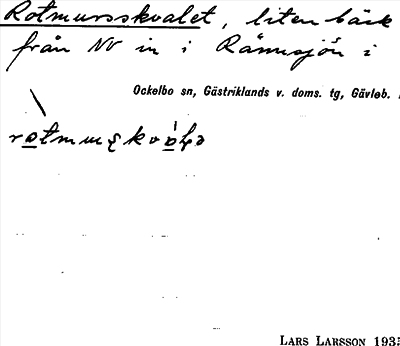 Rotmursskvalet, liten bäck
från NV in i Rämnsjön i
Ockelbo sn, Gästriklands v. doms. tg, Gävleb.
LARS LARSSON 1935